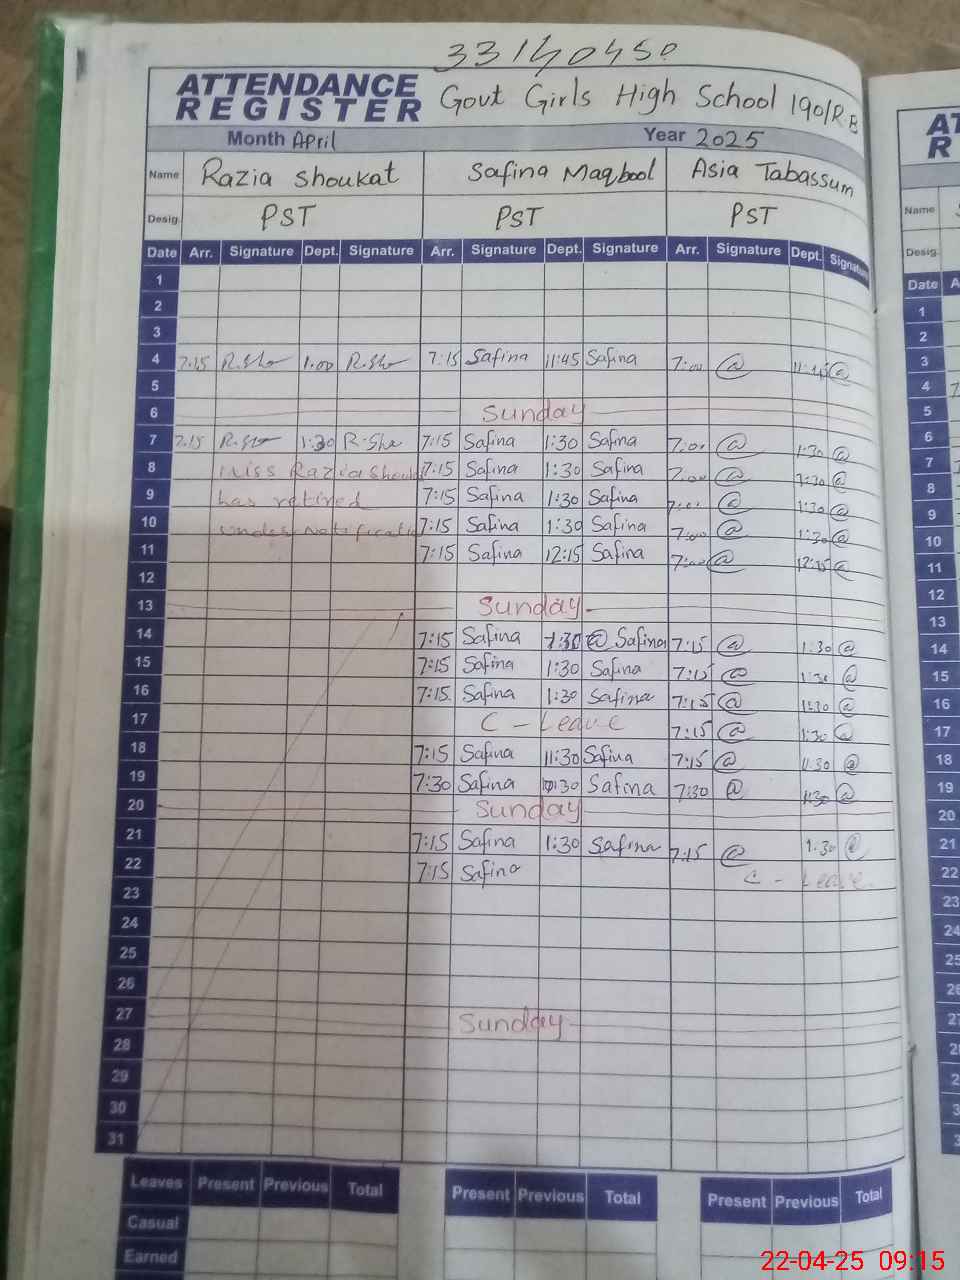 33140450
ATTENDANCE REGISTER Govt Girls High School 190/R.B
Month April Year 2025
Name Razia Shoukat Safina Maqbool Asia Tabassum
Desig. PST PST PST
Date Arr. Signature Dept. Signature Arr. Signature Dept. Signature Arr. Signature Dept. Signature
1
2
3
4 7.15 R.Sho 1.00 R.Sho 7:15 Safina 11:45 Safina 7:00 @ @
5
6 Sunday
7 7.15 R.Sho 1:30 R.Sho 7:15 Safina 1:30 Safina 7:00 @ 1:30 @
8 Miss Razia Shouk 7:15 Safina 1:30 Safina 7:00 @ 1:30 @
9 has retired 7:15 Safina 1:30 Safina @ 1:30 @
10 under notificatio 7:15 Safina 1:30 Safina 7:00 @ 1:30 @
11 7:15 Safina 12:15 Safina 7:00 @ 12:15 @
12
13 Sunday
14 7:15 Safina 1:30 @ Safina 7:15 @ 1:30 @
15 7:15 Safina 1:30 Safina 7:15 @ 1:30 @
16 7:15 Safina 1:30 Safina 7:15 @ 1:30 @
17 C - Leave 7:15 @ 1:30 @
18 7:15 Safina 11:30 Safina 7:15 @ 11:30 @
19 7:30 Safina Safina 7:30 @ @
20 Sunday
21 7:15 Safina 1:30 Safina 7:15 @ 1:30 @
22 7:15 Safina C - Leave
23
24
25
26
27 Sunday
28
29
30
31
Leaves Present Previous Total Present Previous Total Present Previous Total
Casual
Earned
AT
R
Name
Desig.
Date A
1
2
3
4
5
6
7
8
9
10
11
12
13
14
15
16
17
18
19
20
21
22
23
24
25
26
27
22-04-25 09:15